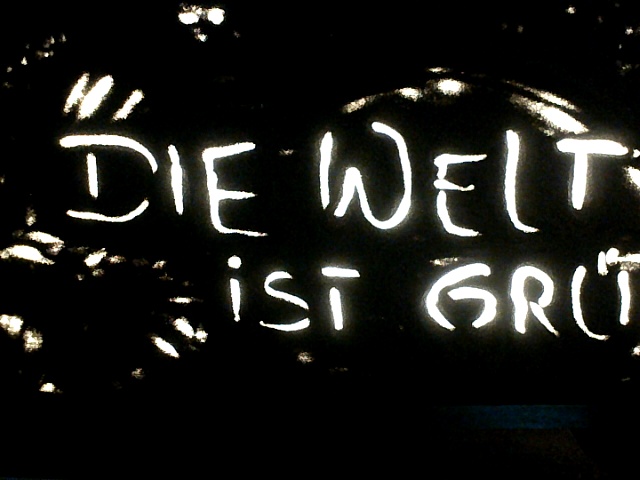 DIE WELT
IST